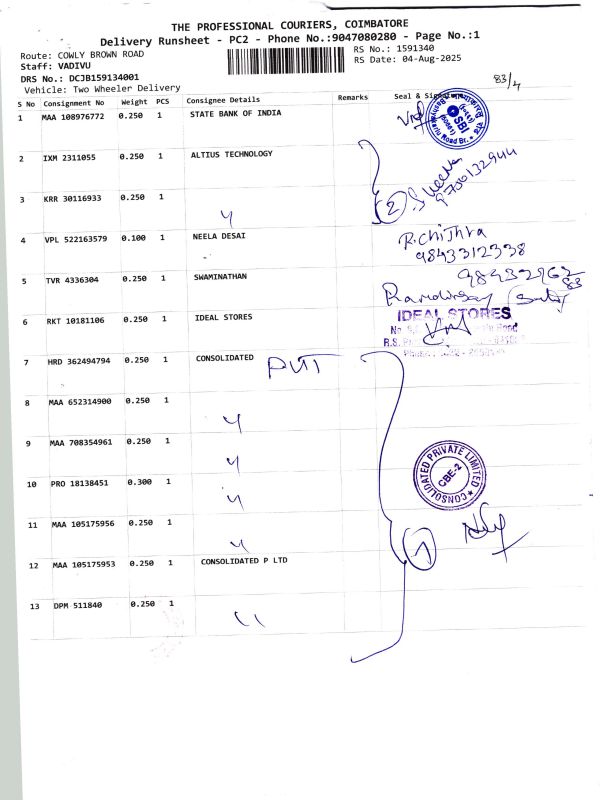 THE PROFESSIONAL COURIERS, COIMBATORE
Delivery Runsheet - PC2 - Phone No.:9047080280 - Page No.:1
Route: COWLY BROWN ROAD
RS No.: 1591340
Staff: VADIVU
RS Date: 04-Aug-2025
DRS No.: DCJB159134001
Vehicle: Two Wheeler Delivery
83/4
S No Consignment No Weight PCS Consignee Details Remarks Seal &
1 MAA 108976772 0.250 1 STATE BANK OF INDIA
SBI
2 IXM 2311055 0.250 1 ALTIUS TECHNOLOGY
2
3 KRR 30116933 0.250 1 "
4 VPL 522163579 0.100 1 NEELA DESAI R.Chithra
9843312338
5 TVR 4336304 0.250 1 SWAMINATHAN
6 RKT 10181106 0.250 1 IDEAL STORES IDEAL STORES
7 HRD 362494794 0.250 1 CONSOLIDATED PVT
8 MAA 652314900 0.250 1 "
9 MAA 708354961 0.250 1 "
10 PRO 18138451 0.300 1 "
CONSOLIDATED PRIVATE LIMITED
CBE-2
11 MAA 105175956 0.250 1 "
7
12 MAA 105175953 0.250 1 CONSOLIDATED P LTD
13 DPM 511840 0.250 1 "